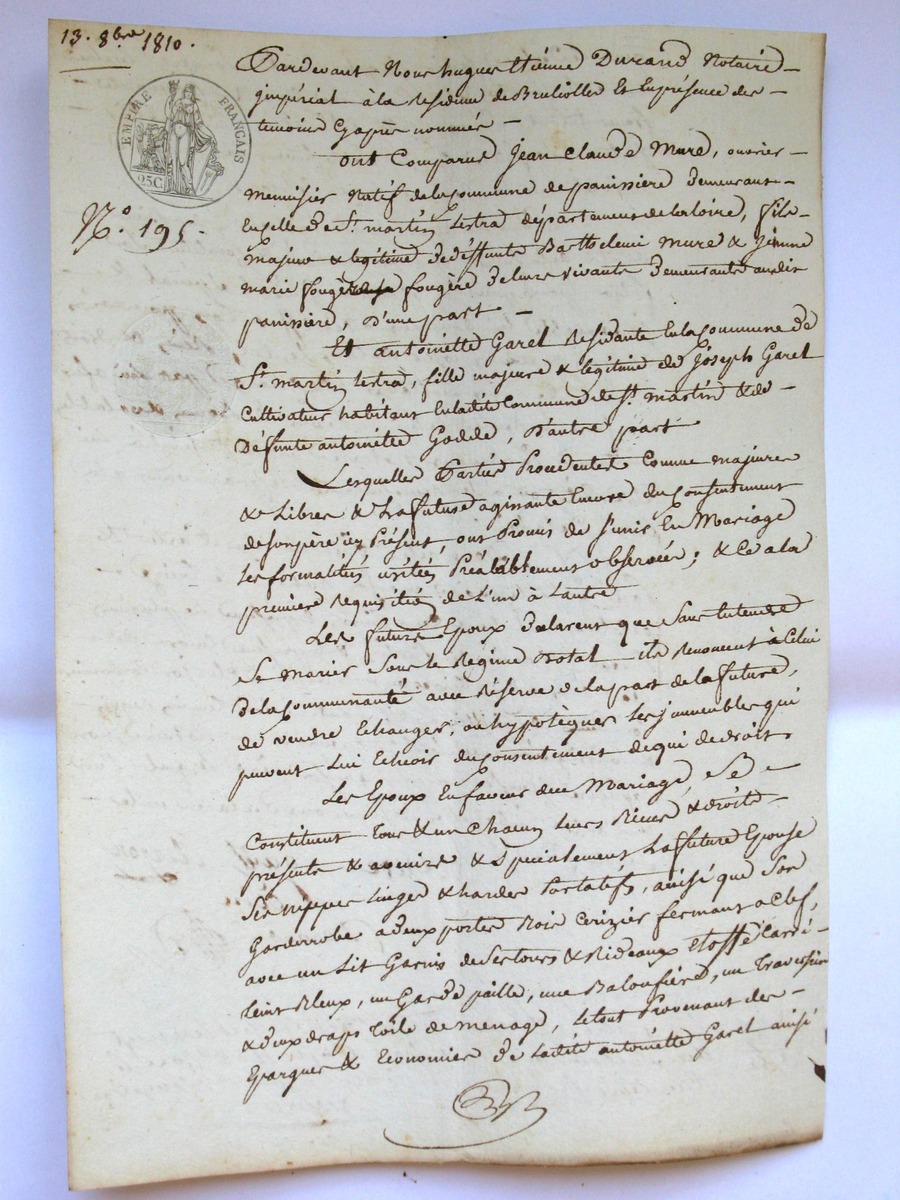 13. 8bre 1810.
EMPIRE FRANÇAIS
25C
N.o 195.
Pardevant Nous hugues Etienne Durand Notaire
impérial à la Résidence de Brulliolles Et En présence des
temoins Cy après nommés
ont Comparus Jean Claude Mure, ouvrier
Menuisier Natif de la Commune de panissiere demeurant
En celle de St. martin Lestra département de la loire, fils
majeur & légitime de deffunts Barthelemi Mure & Jeanne
marie fougère de leurs vivants demeurants audit
panissiere, D'une part
Et antoinette Garel Résidante En la Commune de
St. martin Lestra, fille majeure & légitime de Joseph Garel
Cultivateur habitant En ladite Commune de St. martin & de
Défunte antoinette Godde, D'autre part
Lesquelles Parties Procédantes Comme majeures
& Libres & La future agissante Encore du Consentement
de son père icy Présent, ont Promis de s'unir En Mariage
les formalités usitées Préalablement observées; & Ce a la
première Réquisition de L'un à L'autre
Les futurs Epoux Déclarent que Sans Entendre
Se marier Sous le Régime Dotal ils Renoncent à Celui
De la Communauté avec Réserve de la part de la future,
de vendre Echanger, ou hypotèquer les immeubles qui
peuvent Lui Echeoir du Consentement de qui de droit.
Les Epoux En faveur du Mariage, Se
Constituent Tous & un Chacun leurs Biens & droits
présents & avenirs & Spécialement La future Epouse
Ses nippes linges & hardes Portatifs, ainsi que Son
Garderrobe a deux portes Bois Cerizier fermant a Clef,
avec un Lit Garni de Ses tours & Rideaux Etoffe Carri
teint Bleux, un Garde paille, une Baloufière, un Traversier
& deux draps Toile de menage, le tout Provenant des
Epargnes & Economies de Ladite antoinette Garel ainsi